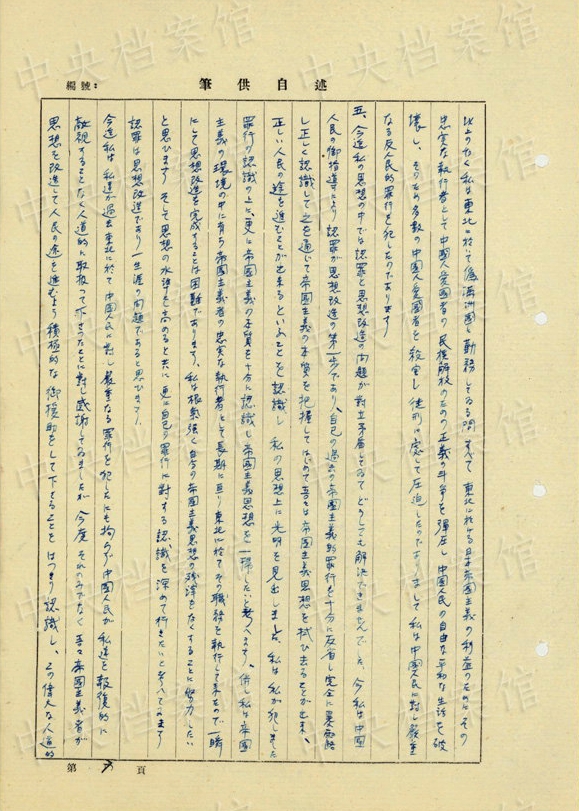 述自供筆
編號：
以上の如く私は東北に於いて偽満洲国に勤務してゐる間すべて東北に於ける日本帝国主義の利益のためにその
忠実な執行者として中国人愛国者の民族解放のための正義の斗争を弾圧し中国人民の自由な平和な生活を破
壊し、そのため多数の中国人愛国者を殺害し徒刑に処して圧迫したのでありまして私は中国人民に対し厳重
なる反人民的罪行を犯したのであります
五、今迄私の思想の中では認罪と思想改造の問題が対立矛盾してゐてどうしても解決できませんでした、今私は中国
人民の御指導により認罪が思想改造の第一歩であり、自己の過去の帝国主義的罪行を十分に反省し完全に暴露
し正しく認識して之を通じて帝国主義の本質を把握してはじめて吾々は帝国主義思想を拭ひ去ることが出来、
正しい人民の途を進むことが出来るといふことを認識し私の思想上に光明を見出しました、私は私が犯しました
罪行の認識の上に、更に帝国主義の本質を十分に認識し帝国主義思想を一掃したいと考へます、併し私は帝国
主義の環境の中に育ち帝国主義者の忠実な執行者として長期に亘り東北に於てその職務を執行して来たので一瞬
にして思想改造を完成することは困難であります、私は根気強く自分の帝国主義思想の残滓をなくすることに努力したい
と思ひます そして思想の水準を高めると共に更に自己の罪行に対する認識を深めて行きたいと考へてゐます
認罪は思想改造であり一生涯の問題であると思ひます、
今迄私は私達が過去東北に於て中国人民に対し厳重なる罪行を犯したにも拘らず中国人民が私達を報復的に
敵視することなく人道的に取扱って下さったことに対し感謝してゐましたが今度それのみでなく吾々帝国主義者が
思想を改造して人民の途を進むよう積極的な御援助をして下さることをはっきり認識し、この偉大な人道的
第 頁
中央档案馆